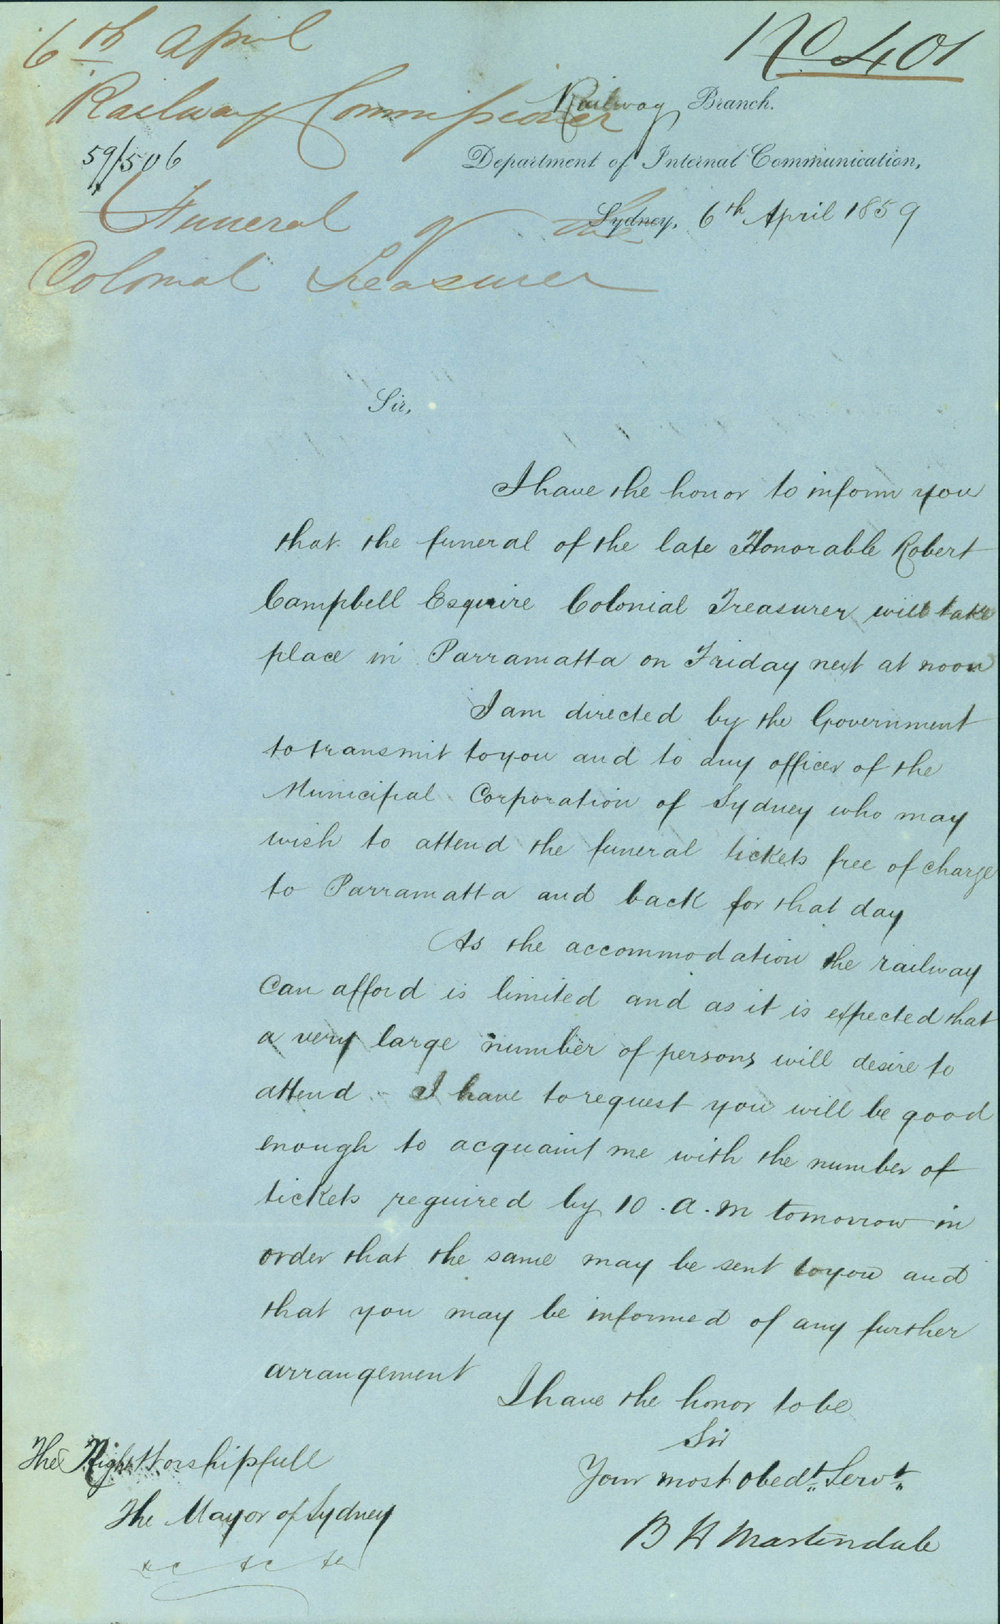 6th April
No 401
Railway Commissioner
Railway Branch.
59/506
Department of Internal Communication,
Funeral of the
Sydney, 6th April 1859
Colonial Treasurer
Sir,
I have the honor to inform you
that the funeral of the late Honorable Robert
Campbell Esquire Colonial Treasurer will take
place in Parramatta on Friday next at noon
I am directed by the Government
to transmit to you and to any officer of the
Municipal Corporation of Sydney who may
wish to attend the funeral tickets free of charge
to Parramatta and back for that day
As the accommodation the railway
can afford is limited and as it is expected that
a very large number of persons will desire to
attend - I have to request you will be good
enough to acquaint me with the number of
tickets required by 10. a. m tomorrow in
order that the same may be sent to you and
that you may be informed of any further
arrangement
I have the honor to be
Sir
Your most obedt. Servt.
B H Martindale
The Right Worshipfull
The Mayor of Sydney
&c &c &c